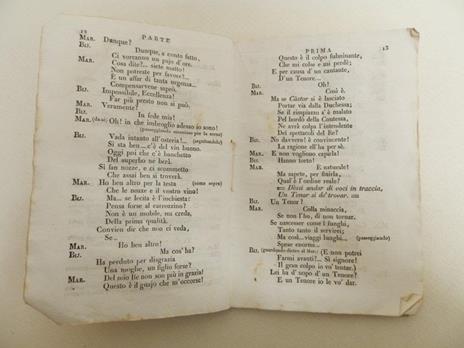 12
PARTE
MAR. Dunque?
BIJ. Dunque, a conto fatto,
Ci vorranno un pajo d'ore.
MAR. Cosa dite?... siete matto!
Non potreste per favore?...
È un affar di tanta urgenza...
Compensarvene saprò.
BIJ. Impossibile, Eccellenza!
Far più presto non si può.
MAR. Veramente?
BIJ. In fede mia!
MAR. (da se) Oh! in che imbroglio adesso io sono!
(passeggiando smanioso per la scena)
BIJ. Vada intanto all'osteria!... (seguitandolo)
Si sta ben... c'è del vin buono.
Oggi poi che c'è banchetto
Del superbo ne berà.
Si fan nozze, e ci scommetto
Che assai ben si troverà.
MAR. Ho ben altro per la testa (come sopra)
Che le nozze e il vostro vino!
BIJ. Ma... se lecita è l'inchiesta!
Pensa forse al carrozzino?
Non è un mobile, mi creda,
Della prima qualità.
Convien dir che non ci veda,
Se...
MAR. Ho ben altro!
BIJ. Ma cos'ha?
Ha perduto per disgrazia
Una moglie, un figlio forse?
MAR. Del mio Re non son più in grazia!
Questo è il guajo che m'occorse!
PRIMA
13
Questo è il colpo fulminante,
Che mi colse e mi perdè;
E per causa d'un cantante,
D'un Tenore...
BIJ. Oh!
MAR. Così è.
Ma se Càstor si è lasciato
Portar via dalla Duchessa;
Se il rimpiazzo s'è malato
Pel bordò della Contessa,
Ne avrà colpa l'intendente
Dei spettacoli del Re?
BIJ. No davvero! è convincente!
La ragione ell'ha per sè.
MAR. E non vogliono capirla!
BIJ. Hanno torto!
MAR. È naturale!
Ma sapete, per finirla,
Qual è l'ordine reale?
Dèssi andar di voci in traccia,
Un Tenor si de' trovar.
BIJ. Un Tenor?
MAR. Colla minaccia,
Se non l'ho, di non tornar.
Se nascesser come i funghi,
Tanto tanto il servirei;
Ma così... viaggi lunghi... (passeggiando)
Spese enormi...
BIJ. (guardando dietro al Mar.) (E non potrei
Farmi avanti?... Sì signore!
Il gran colpo in vo' tentar.)
Lei ha d'uopo d'un Tenore?
E un Tenore io le vo' dar.